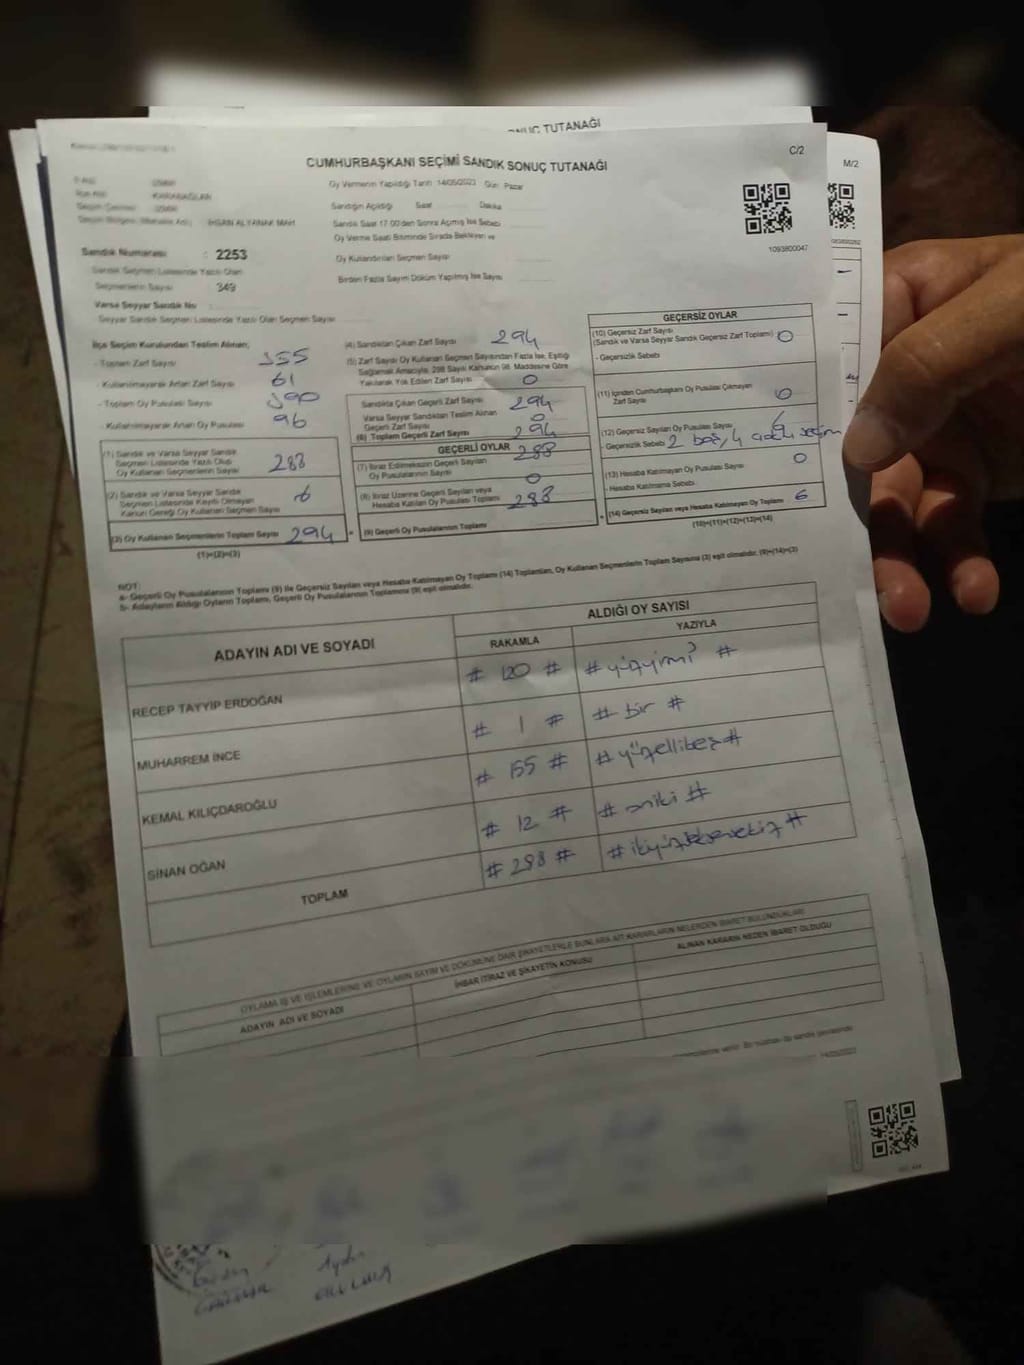 ONUÇ TUTANAĞI
C/2
M/2
CUMHURBAŞKANI SEÇİMİ SANDIK SONUÇ TUTANAĞI
Oy Vermenin Yapıldığı Tarih 14/05/2023 Gün: Pazar
KARABAĞLAR
Sandığın Açıldığı Saat Dakika
İHSAN ALYANAK MAH
Sandık Saat 17:00'den Sonra Açılmış İse Sebebi
Oy Verme Saati Bitiminde Sırada Bekleyen ve
Oy Kullandırılan Seçmen Sayısı
1093800047
Sandık Numarası : 2253
Birden Fazla Sayım Döküm Yapılmış İse Sayısı
Sandık Seçmen Listesinde Yazılı Olan
Seçmenlerin Sayısı 349
Varsa Seyyar Sandık No
Seyyar Sandık Seçmen Listesinde Yazılı Olan Seçmen Sayısı
İlçe Seçim Kurulundan Teslim Alınan;
- Toplam Zarf Sayısı 355
- Kullanılmayarak Artan Zarf Sayısı 61
- Toplam Oy Pusulası Sayısı 390
- Kullanılmayarak Artan Oy Pusulası 96
(1) Sandık ve Varsa Seyyar Sandık
Seçmen Listesinde Yazılı Olup
Oy Kullanan Seçmenlerin Sayısı 288
(2) Sandık ve Varsa Seyyar Sandık
Seçmen Listesinde Kayıtlı Olmayan
Kanun Gereği Oy Kullanan Seçmen Sayısı 6
(3) Oy Kullanan Seçmenlerin Toplam Sayısı 294
(1)+(2)=(3)
(4) Sandıktan Çıkan Zarf Sayısı 294
(5) Zarf Sayısı Oy Kullanan Seçmen Sayısından Fazla İse, Eşitliği
Sağlamak Amacıyla; 298 Sayılı Kanunun 98. Maddesine Göre
Yakılarak Yok Edilen Zarf Sayısı 0
Sandıkta Çıkan Geçerli Zarf Sayısı 294
Varsa Seyyar Sandıktan Teslim Alınan
Geçerli Zarf Sayısı 0
(6) Toplam Geçerli Zarf Sayısı 294
GEÇERLİ OYLAR
(7) İtiraz Edilmeksizin Geçerli Sayılan
Oy Pusulalarının Sayısı 288
(8) İtiraz Üzerine Geçerli Sayılan veya
Hesaba Katılan Oy Pusulası Toplamı 0
(9) Geçerli Oy Pusulalarının Toplamı 288
GEÇERSİZ OYLAR
(10) Geçersiz Zarf Sayısı
(Sandık ve Varsa Seyyar Sandık Geçersiz Zarf Toplamı) 0
- Geçersizlik Sebebi
(11) İçinden Cumhurbaşkanı Oy Pusulası Çıkmayan
Zarf Sayısı 0
(12) Geçersiz Sayılan Oy Pusulası Sayısı 6
- Geçersizlik Sebebi 2 boş, 4 seçim
(13) Hesaba Katılmayan Oy Pusulası Sayısı 0
- Hesaba Katılmama Sebebi
(14) Geçersiz Sayılan veya Hesaba Katılmayan Oy Toplamı 6
(10)+(11)+(12)+(13)=(14)
NOT:
a- Geçerli Oy Pusulalarının Toplamı (9) ile Geçersiz Sayılan veya Hesaba Katılmayan Oy Toplamı (14) Toplamları, Oy Kullanan Seçmenlerin Toplam Sayısına (3) eşit olmalıdır. (9)+(14)=(3)
b- Adayların Aldığı Oyların Toplamı, Geçerli Oy Pusulalarının Toplamına (9) eşit olmalıdır.
ADAYIN ADI VE SOYADI
ALDIĞI OY SAYISI
RAKAMLA YAZIYLA
RECEP TAYYİP ERDOĞAN # 120 # # yüzyirmi #
MUHARREM İNCE # 1 # # bir #
KEMAL KILIÇDAROĞLU # 155 # # yüzellibeş #
SİNAN OĞAN # 12 # # oniki #
TOPLAM # 288 # # ikiyüzseksensekiz #
OYLAMA İŞ VE İŞLEMLERİNE VE OYLARIN SAYIM VE DÖKÜMÜNE DAİR ŞİKAYETLERLE BUNLARA AİT KARARLARIN NELERDEN İBARET BULUNDUKLARI
ADAYIN ADI VE SOYADI
İHBAR İTİRAZ VE ŞİKAYETİN KONUSU
ALINAN KARARIN NEDEN İBARET OLDUĞU
14/05/2023